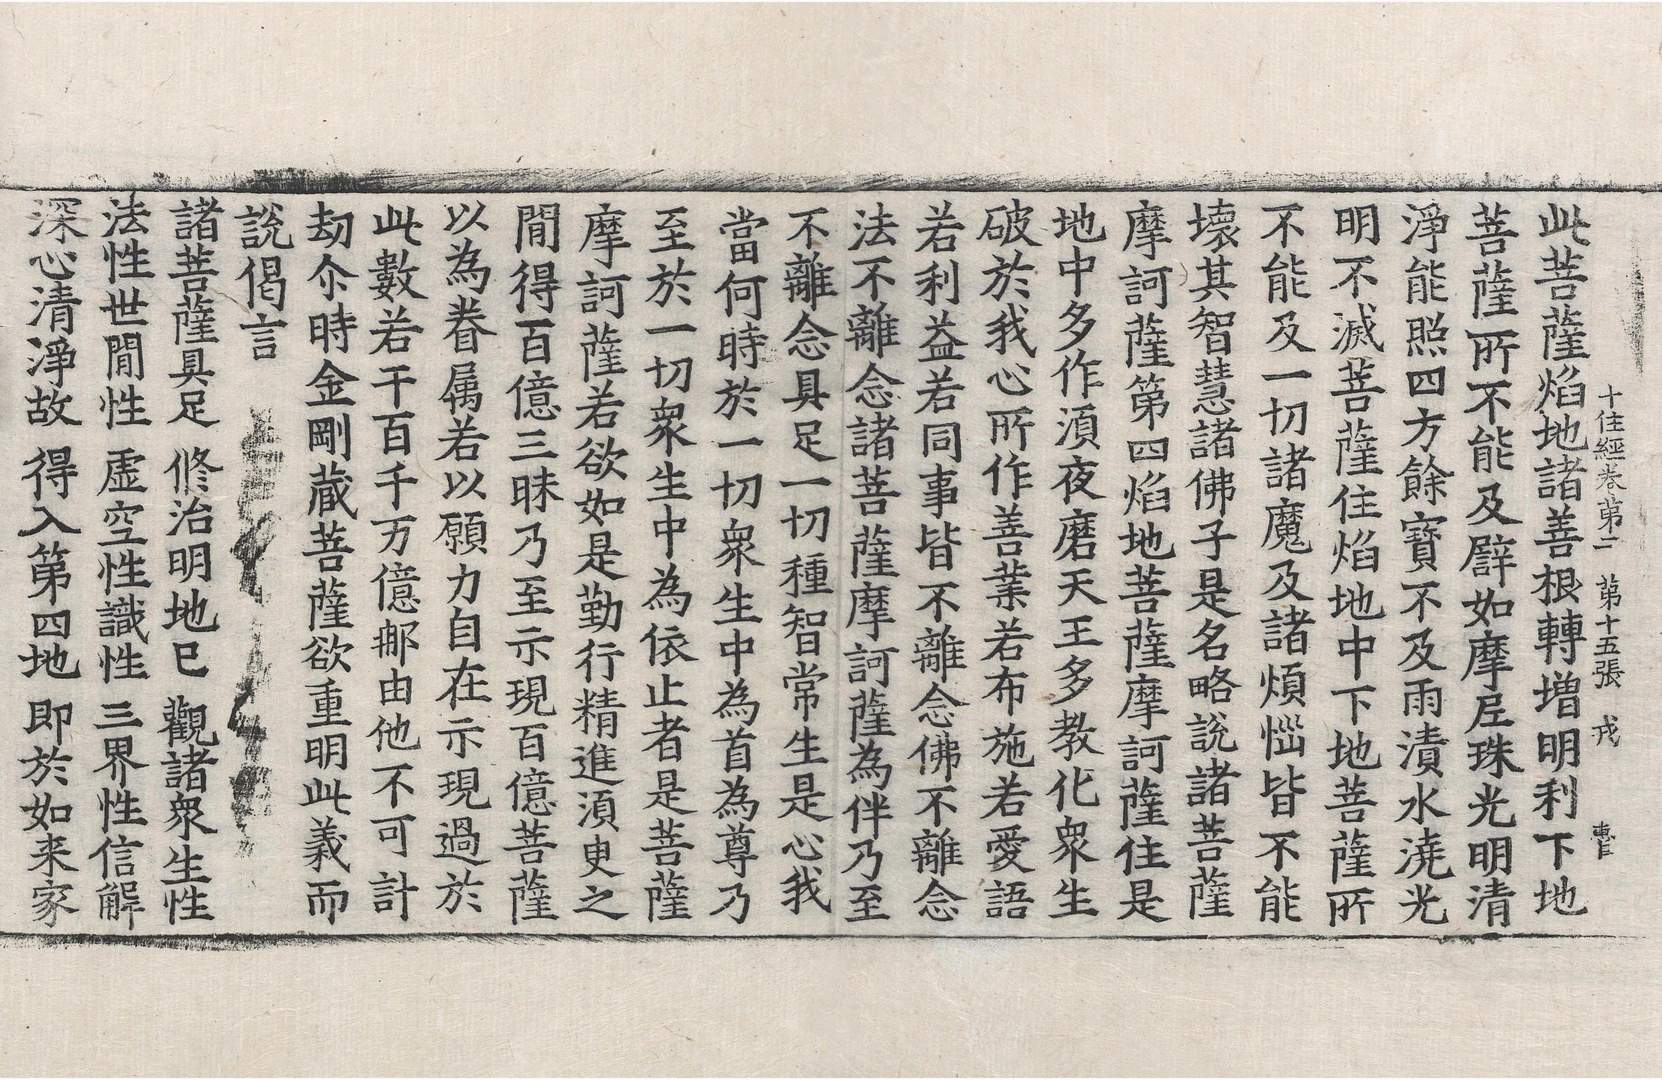 十住經卷第二　第十五張　戎
此菩薩焰地諸善根轉增明利下地
菩薩所不能及譬如摩尼珠光明清
淨能照四方餘寶不及雨漬水澆光
明不滅菩薩住焰地中下地菩薩所
不能及一切諸魔及諸煩惱皆不能
壞其智慧諸佛子是名略說諸菩薩
摩訶薩第四焰地菩薩摩訶薩住是
地中多作須夜磨天王多教化衆生
破於我心所作善業若布施若愛語
若利益若同事皆不離念佛不離念
法不離念諸菩薩摩訶薩為伴乃至
不離念具足一切種智常生是心我
當何時於一切衆生中為首為尊乃
至於一切衆生中為依止者是菩薩
摩訶薩若欲如是勤行精進須臾之
閒得百億三昧乃至示現百億菩薩
以為眷属若以願力自在示現過於
此數若干百千万億那由他不可計
劫尒時金剛蔵菩薩欲重明此義而
說偈言
諸菩薩具足　修治明地已　觀諸衆生性
法性世閒性　虛空性識性　三界性信解
深心清淨故　得入第四地　即於如来家